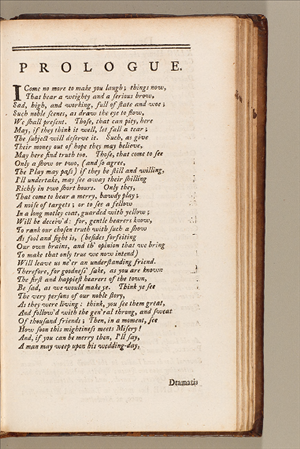 PROLOGUE.
I Come no more to make you laugh; things now,
That bear a weighty and a serious brow,
Sad, high, and working, full of state and woe;
Such noble scenes, as draw the eye to flow,
We shall present. Those, that can pity, here
May, if they think it well, let fall a tear;
The subject will deserve it. Such, as give
Their money out of hope they may believe,
May here find truth too. Those, that come to see
Only a show or two, (and so agree,
The Play may pass) if they be still and willing,
I'll undertake, may see away their shilling
Richly in two short hours. Only they,
That come to hear a merry, bawdy play;
A noise of targets; or to see a fellow
In a long motley coat, guarded with yellow;
Will be deceiv'd: for, gentle hearers know,
To rank our chosen truth with such a show
As fool and fight is, (besides forfeiting
Our own brains, and th' opinion that we bring
To make that only true we now intend)
Will leave us ne'er an understanding friend.
Therefore, for goodness' sake, as you are known
The first and happiest hearers of the town,
Be sad, as we would make ye. Think ye see
The very persons of our noble story,
As they were living: think, you see them great,
And follow'd with the gen'ral throng, and sweat
Of thousand friends; Then, in a moment, see
How soon this mightiness meets Misery!
And, if you can be merry then, I'll say,
A man may weep upon his wedding-day.
Dramatis